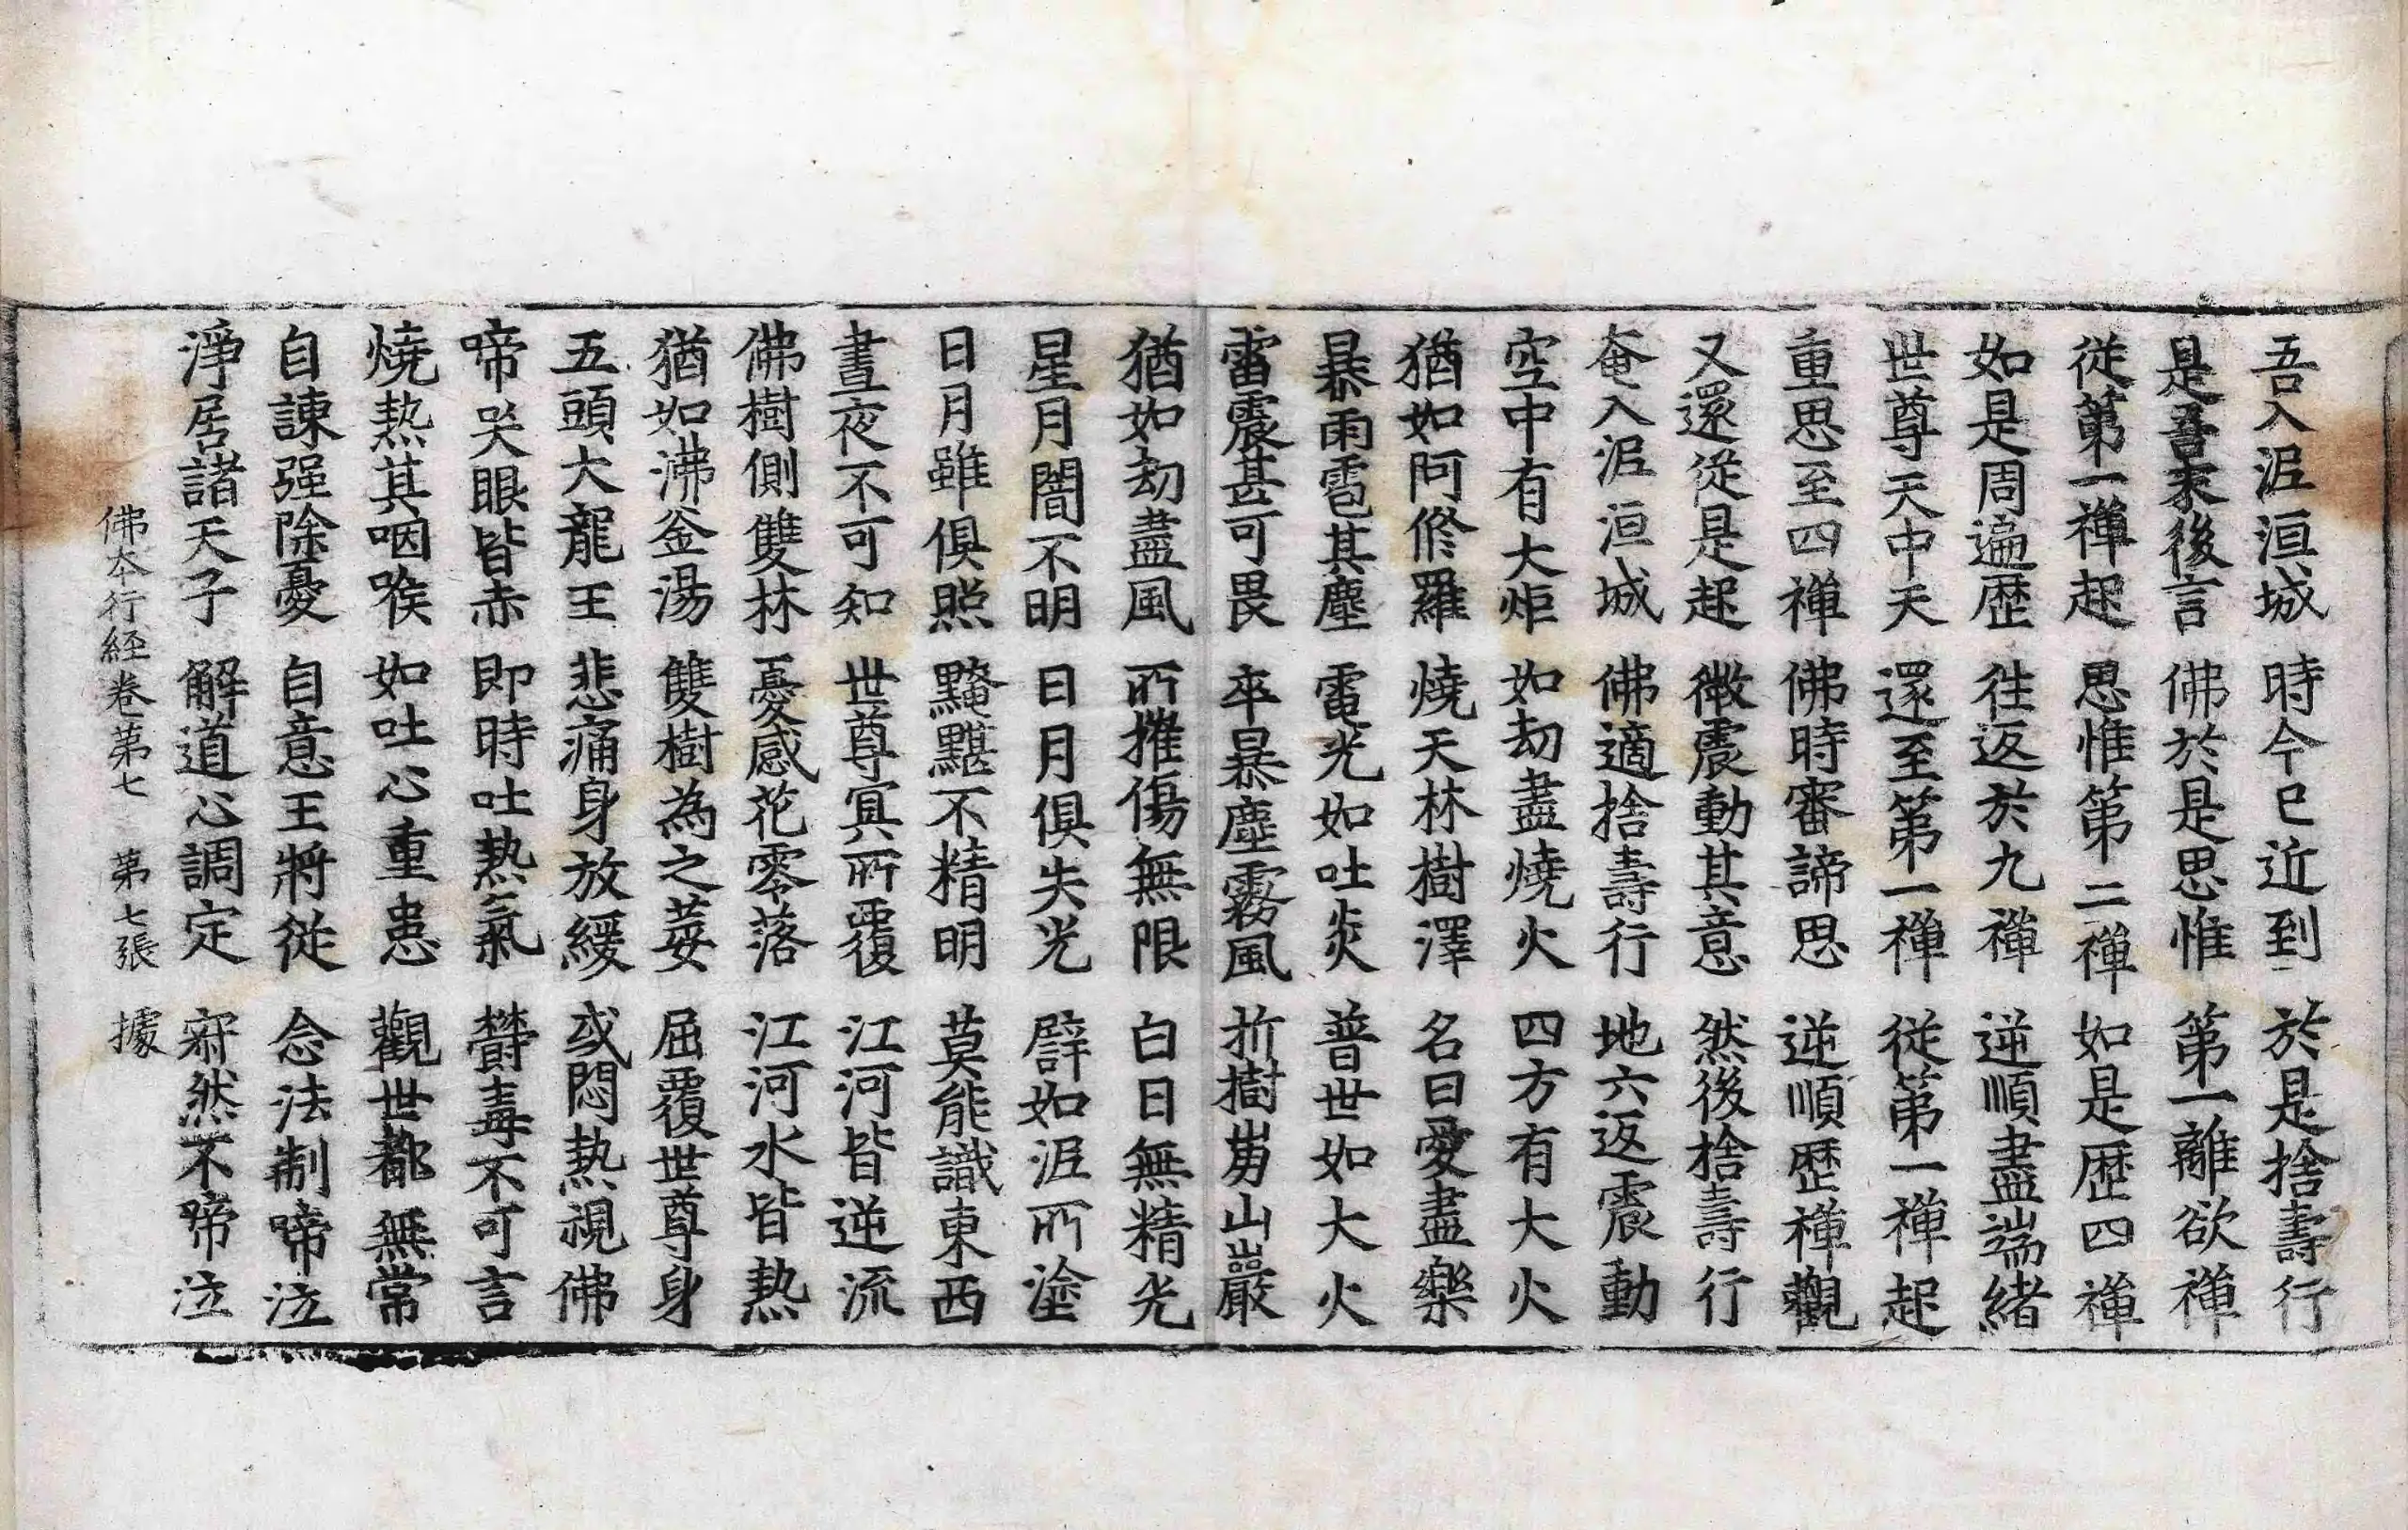 吾入泥洹城 時今已近到 於是捨壽行
是吾末後言 佛於是思惟 第一離欲禪
從第一禪起 思惟第二禪 如是歷四禪
如是周遍歷 往返於九禪 逆順盡端緒
世尊天中天 還至第一禪 從第一禪起
重思至四禪 佛時審諦思 逆順歷禪觀
又還從是起 微震動其意 然後捨壽行
奄入泥洹城 佛適捨壽行 地六返震動
空中有大炬 如劫盡燒火 四方有大火
猶如阿修羅 燒天林樹澤 名曰愛盡樂
暴雨雹其塵 電光如吐炎 普世如大火
雷震甚可畏 卒暴塵霧風 折樹崩山巖
猶如劫盡風 所摧傷無限 白日無精光
星月闇不明 日月俱失光 譬如泥所塗
日月雖俱照 黤黮不精明 莫能識東西
晝夜不可知 世尊冥所覆 江河皆逆流
佛樹側雙林 憂感花零落 江河水皆熱
猶如沸釜湯 雙樹為之萎 屈覆世尊身
五頭大龍王 悲痛身放緩 或悶熱視佛
啼哭眼皆赤 即時吐熱氣 欝毒不可言
燒熱其咽喉 如吐心重患 觀世都無常
自諫强除憂 自意王將從 念法制啼泣
淨居諸天子 解道心調定 寂然不啼泣
佛本行經卷第七 第七張 據